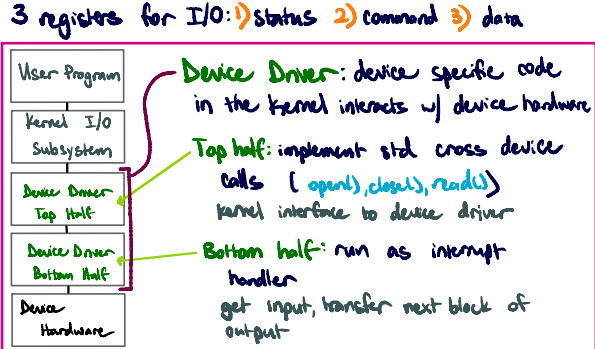 3 registers for I/O: 1) status 2) command 3) data
User Program
Kernel I/O
Subsystem
Device Driver
Top Half
Device Driver
Bottom Half
Device
Hardware
Device Driver: device specific code
in the kernel interacts w/ device hardware
Top half: implement std cross device
calls ( open(), close(), read() )
kernel interface to device driver
Bottom half: run as interrupt
handler
get input, transfer next block of
output